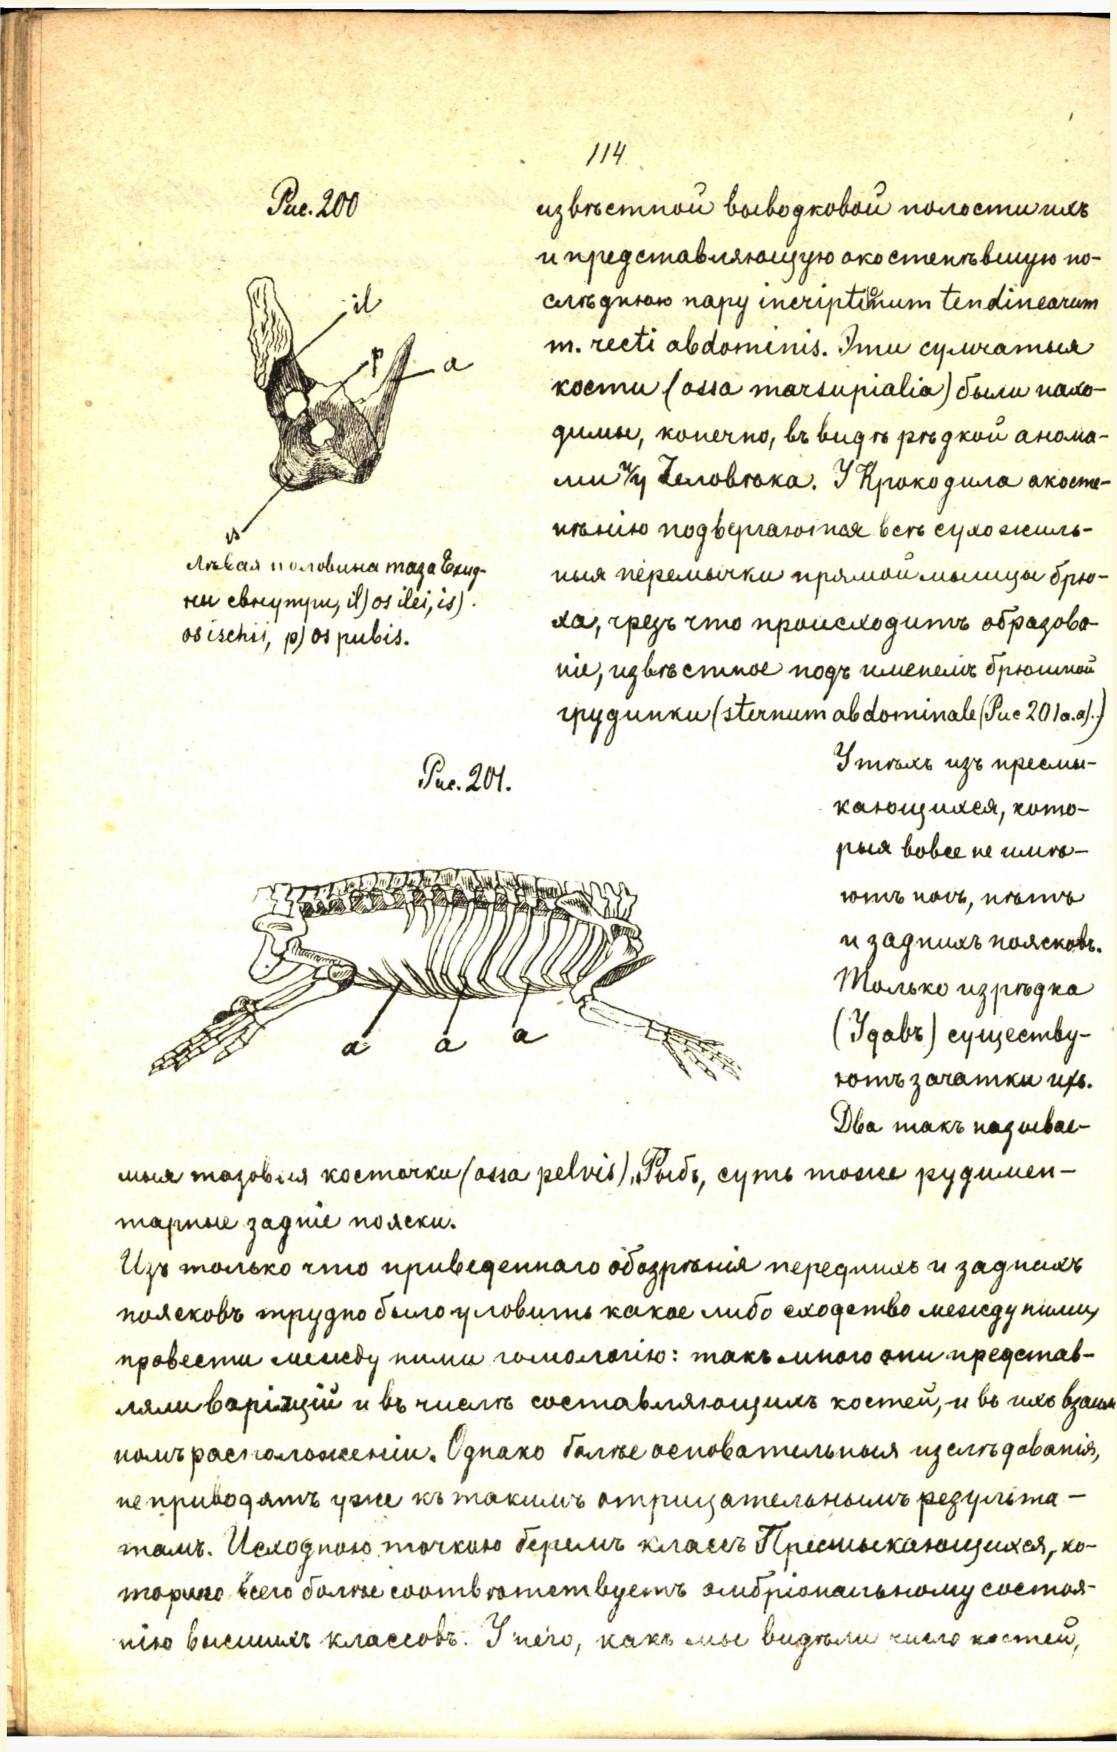 114
Рис. 200
il
p
a
is
Лѣвая половина таза Ехид-
ны свнутри, il) os ilei, is)
os ischii, p) os pubis.
извѣстной выводковой полости ихъ
и представляющую окостенѣвшую по-
слѣднюю пару incriptionum tendinearum
m. recti abdominis. Эти сумчатыя
кости (ossa marsupialia) были нахо-
димы, конечно, въ видѣ рѣдкой анома-
ліи и у Человѣка. У Крокодила окосте-
нѣнію подвергаются всѣ сухожиль-
ныя перемычки прямой мышцы брю-
ха, чрезъ что происходитъ образова-
ніе, извѣстное подъ именемъ брюшной
грудинки (sternum abdominale (Рис 201 a.a).)
Рис. 201.
a a a
У тѣхъ изъ пресмы-
кающихся, кото-
рыя вовсе не имѣ-
ютъ ногъ, нѣтъ
и заднихъ поясковъ.
Только изрѣдка
(Удавъ) существу-
ютъ зачатки ихъ.
Два такъ называе-
мыя тазовыя косточки (ossa pelvis) Рыбъ, суть тоже рудимен-
тарные задніе пояски.
Изъ только что приведеннаго обозрѣнія переднихъ и заднихъ
поясковъ трудно было уловить какое либо сходство между ними,
провести между ними гомологію: такъ много они представ-
ляли варіацій и въ числѣ составляющихъ костей, и въ ихъ взаим
номъ расположеніи. Однако болѣе основательныя изслѣдованія,
не приводятъ уже къ такимъ отрицательнымъ результа-
тамъ. Исходною точкою беремъ классъ Пресмыкающихся, ко-
тораго всего болѣе соотвѣтствуетъ эмбріональному состоя-
нію высшихъ классовъ. У него, какъ мы видѣли число костей,